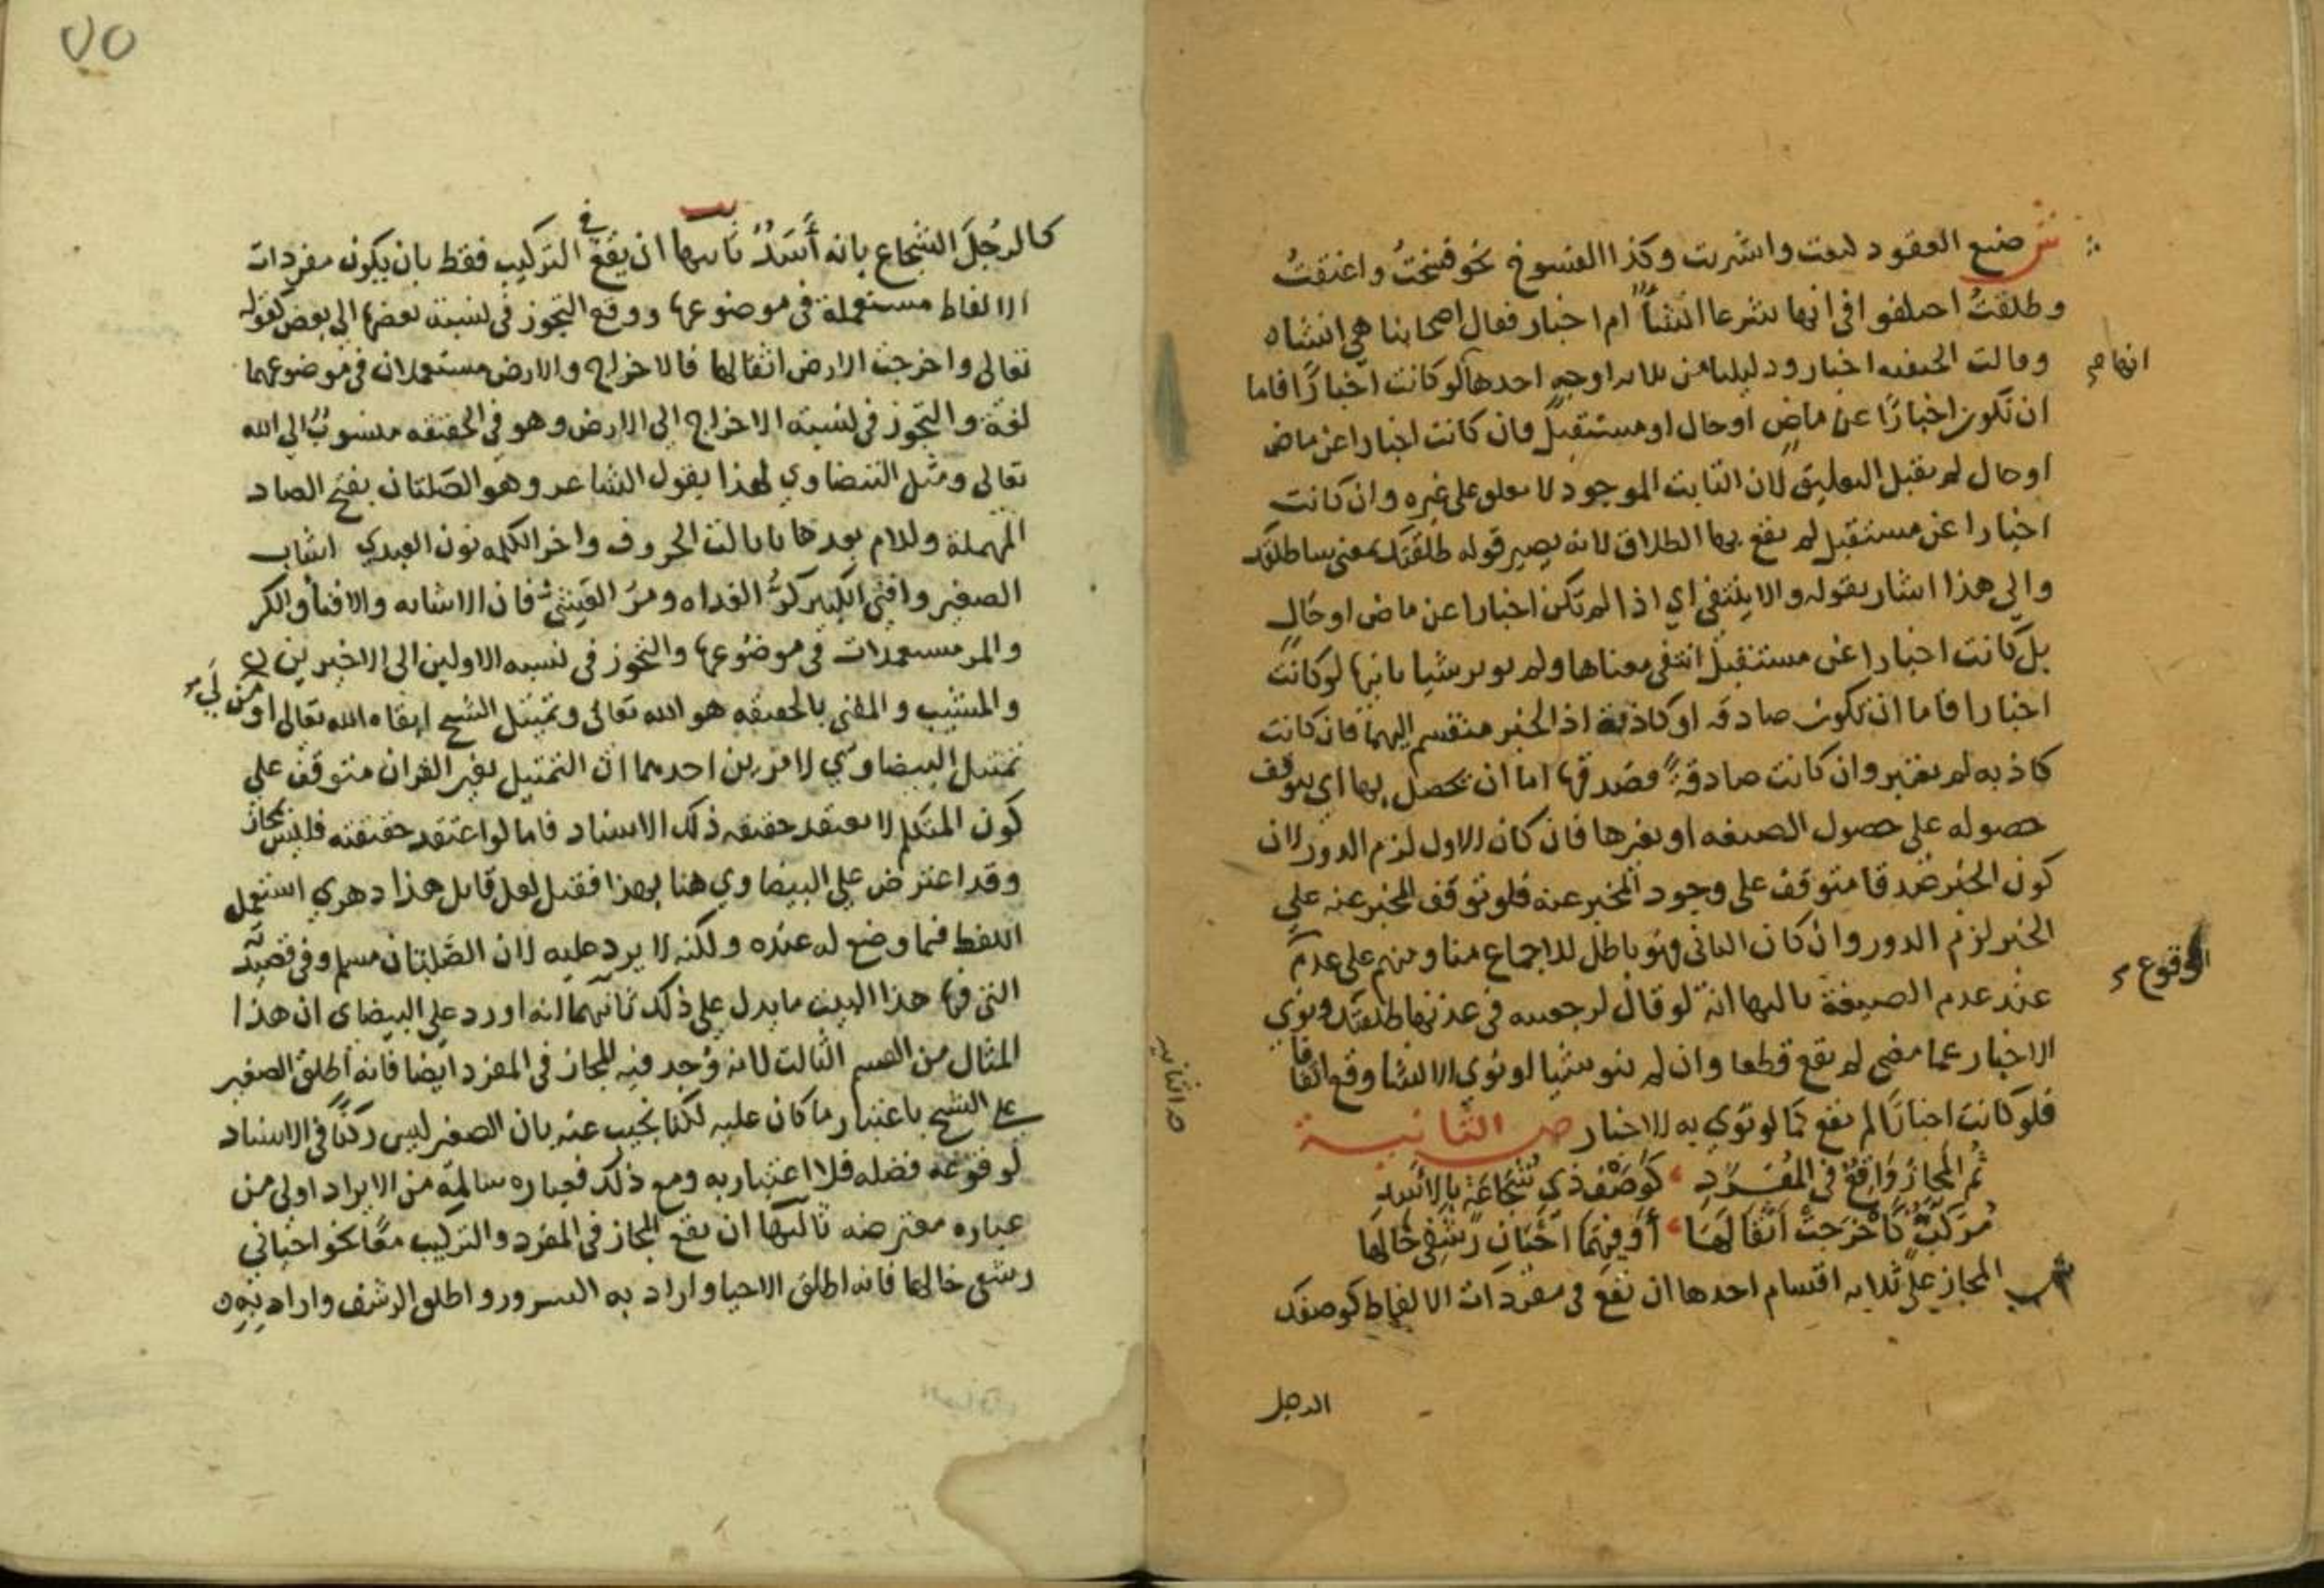 ش صيغ العقود كبعت واشتريت وكذا الفسوخ نحو فسخت واعتقت
وطلقت اختلفوا في انها شرعا انشاء ام اخبار فقال اصحابنا هي انشاء
وقالت الحنفيه اخبار ودليلنا من ثلاثه اوجه احدها لو كانت اخبارًا فاما
انها
ان تكون اخبارًا عن ماضٍ او حال او مستقبل فان كانت اخبارا عن ماض
او حال لم يقبل التعليق لان الثابت الموجود لا يعلق على غيره وان كانت
اخبارا عن مستقبل لم يقع بها الطلاق لانه يصير قوله طلقتك بمعنى ساطلقك
والى هذا اشار بقوله والا ينتفي اي اذا لم تكن اخبارا عن ماض او حال
بل كانت اخبارا عن مستقبل انتفى معناها ولم يوثر شيا ثانيها لو كانت
اخبارا فاما ان تكون صادقه او كاذبة اذ الخبر منقسم اليهما فان كانت
كاذبه لم يعتبر وان كانت صادقة فصدقها اما ان تحصل بها اي يتوقف
حصوله على حصول الصيغه او بغيرها فان كان الاول لزم الدور لان
كون الخبر صدقا متوقف على وجود المخبر عنه فلو توقف المخبر عنه على
الخبر لزم الدور وان كان الثاني فهو باطل للاجماع منا ومنهم على عدم
الوقوع
عند عدم الصيغة ثالثها انه لو قال لرجعيته في عدتها طلقتك ونوى
الاخبار عما مضى لم يقع قطعا وان لم ينو شيا او نوى الانشا وقع اتفاقا
فلو كانت اخبارًا لم يقع كما لو نوى به الاخبار ص الثانية
ثُمَّ المجازُ وَاقِعٌ في المُفْرَدِ كَوَصْفِ ذي شَجَاعَةٍ بالاسَدِ
مُرَكَّبٌ كَأخْرَجَتْ أثْقَالَهَا أوْ فِيهِمَا احْيَانِ رَشْفِي خَالَهَا
ش المجاز على ثلاثه اقسام احدها ان تقع في مفردات الالفاظ كوصفك
الرجل
٧٥
كالرجل الشجاع بانه أسَدٌ ثانيها ان يقع في التركيب فقط بان يكون مفردات
الالفاظ مستعملة في موضوعها ووقع التجوز في نسبة بعضها الى بعض كقوله
تعالى واخرجت الارض اثقالها فالاخراج والارض مستعملان في موضوعهما
لغة والتجوز في نسبة الاخراج الى الارض وهو في الحقيقه منسوب الى الله
تعالى ومثل البيضاوي لهذا بقول الشاعر وهو الصلتان بفتح الصاد
المهملة ولام بعدها تا ثالث الحروف واخر الكلمه نون العبدي اشاب
الصغير وافنى الكبير كرُّ الغداه ومرّ العشي فان الاشابه والافنا والكر
والمر مستعملات في موضوعها والتجوز في نسبه الاولين الى الاخيرين
والمشيب والمفني بالحقيقه هو الله تعالى وتمثيل الشيح ابقاه الله تعالى اولى من
تمثيل البيضاوي لامرين احدهما ان التمثيل بغير القران متوقف على
كون المتكلم لا يعتقد حقيقه ذلك الاسناد فاما لو اعتقد حقيقته فليس بمجاز
وقد اعترض على البيضاوي هنا بهذا فقيل لعل قايل هذا دهري استعمل
اللفظ فيما وضع له عنده ولكنه لا يرد عليه لان الصلتان مسلم وفي قصيدته
التي فيها هذا البيت ما يدل على ذلك ثانيهما انه اورد على البيضاى ان هذا
المثال من القسم الثالث لانه وُجد فيه المجاز في المفرد ايضا فانه اطلق الصغير
على الشيح باعتبار ما كان عليه لكنا نجيب عنه بان الصغير ليس ركنًا في الاسناد
لوقوعه فضله فلا اعتبار به ومع ذلك فعباره سالمة من الايراد اولى من
عباره معترضه ثالثها ان يقع المجاز في المفرد والتركيب معًا نحو احياني
رشفي خالها فانه اطلق الاحيا واراد به السرور واطلق الرشف واراد به